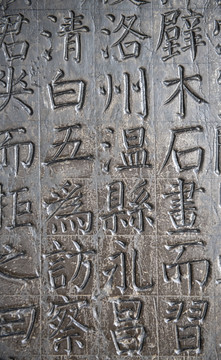 壁木石畫而習
洛州溫縣永昌
清白五為訪察
君笑而拒之曰